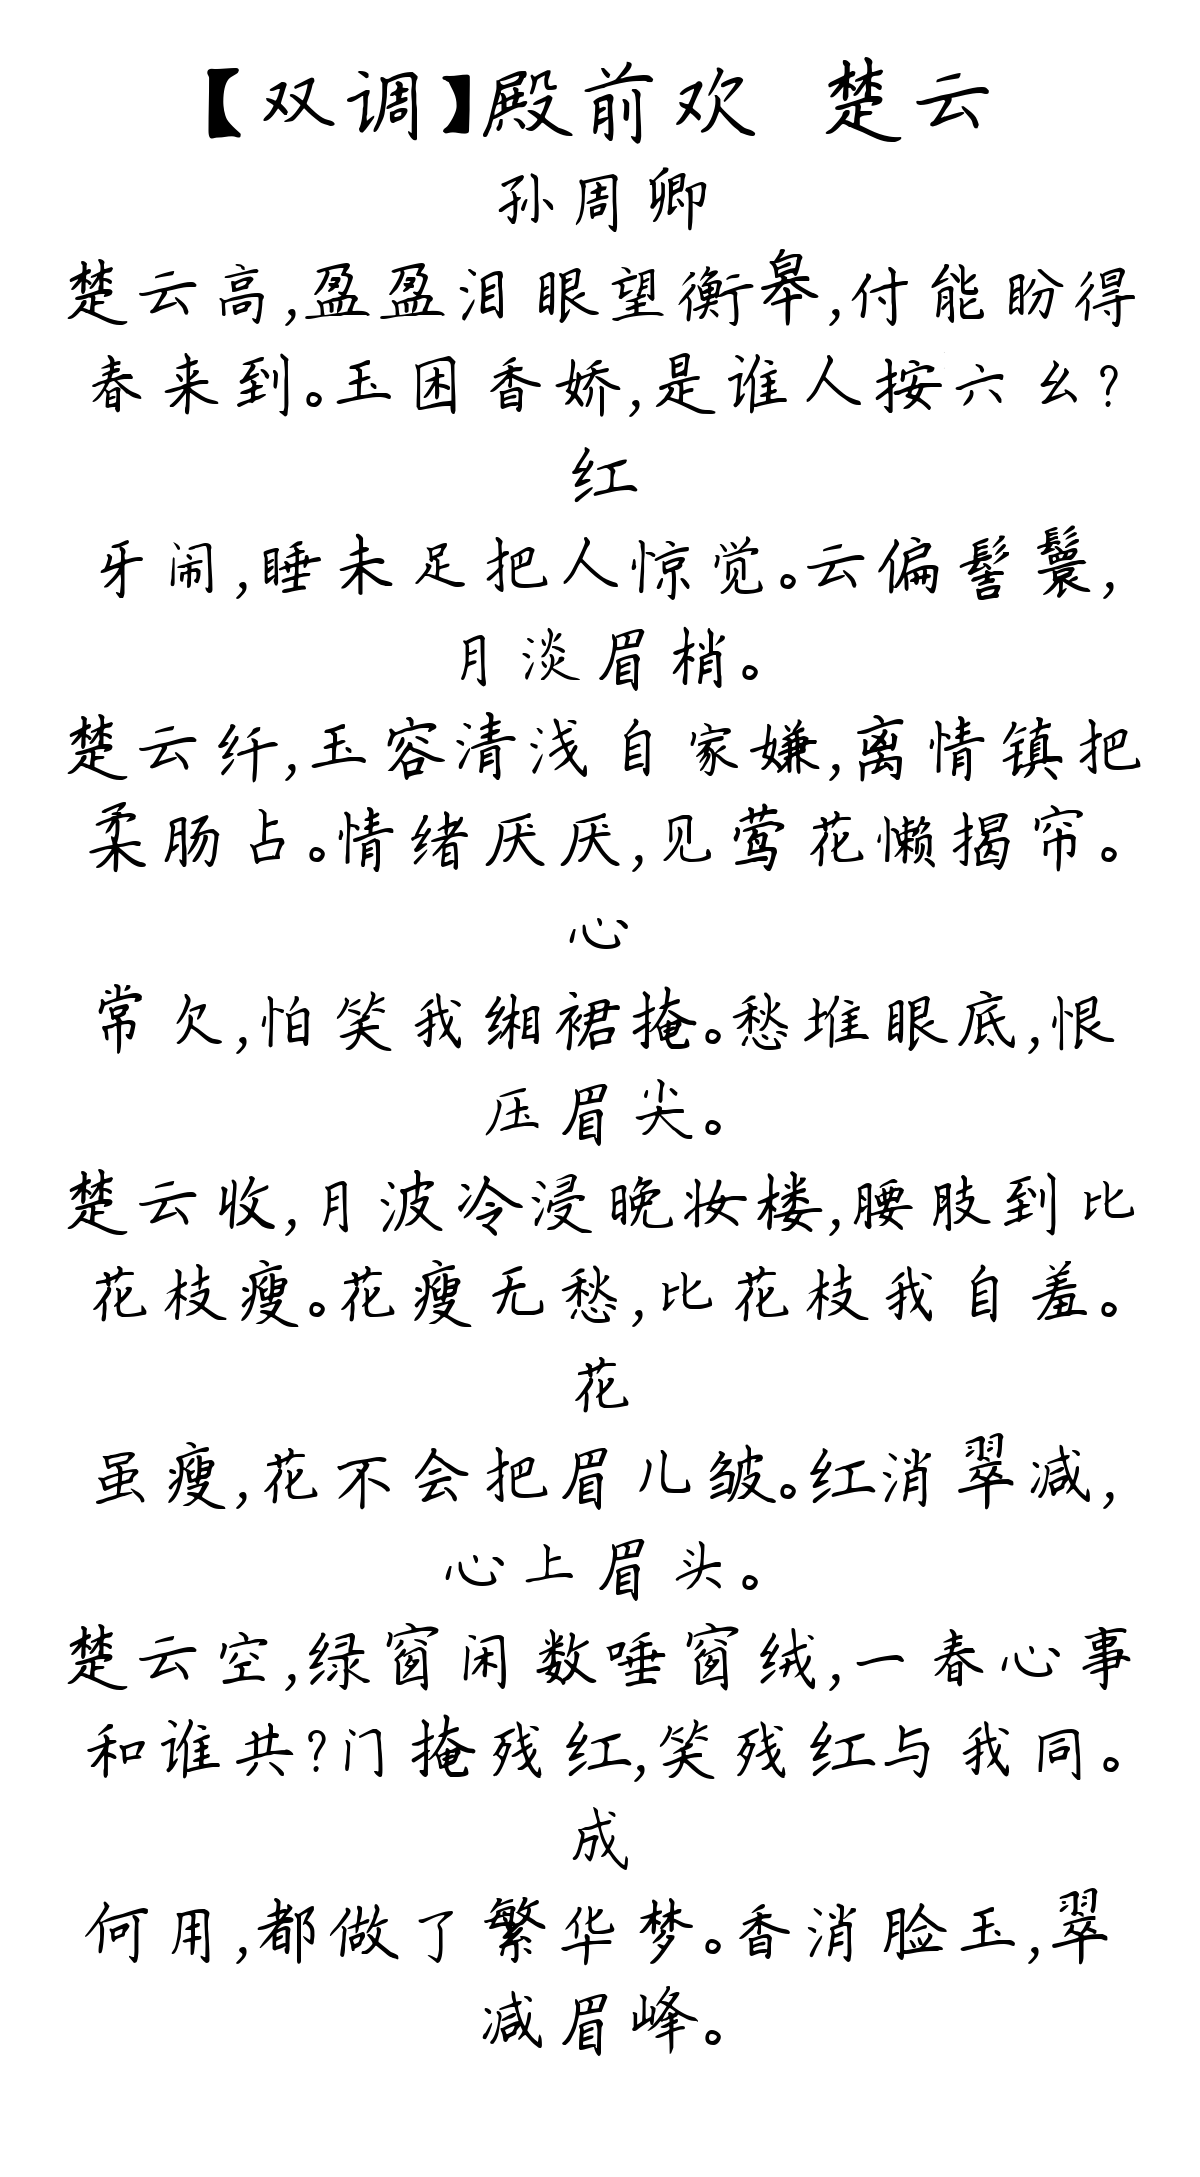 【双调】殿前欢 楚云
孙周卿
楚云高,盈盈泪眼望衡皋,付能盼得
春来到。玉困香娇,是谁人按六幺?
红
牙闹,睡未足把人惊觉。云偏髻鬟,
月淡眉梢。
楚云纤,玉容清浅自家嫌,离情镇把
柔肠占。情绪厌厌,见莺花懒揭帘。
心
常欠,怕笑我缃裙掩。愁堆眼底,恨
压眉尖。
楚云收,月波冷浸晚妆楼,腰肢到比
花枝瘦。花瘦无愁,比花枝我自羞。
花
虽瘦,花不会把眉儿皱。红消翠减,
心上眉头。
楚云空,绿窗闲数唾窗绒,一春心事
和谁共?门掩残红,笑残红与我同。
成
何用,都做了繁华梦。香消脸玉,翠
减眉峰。